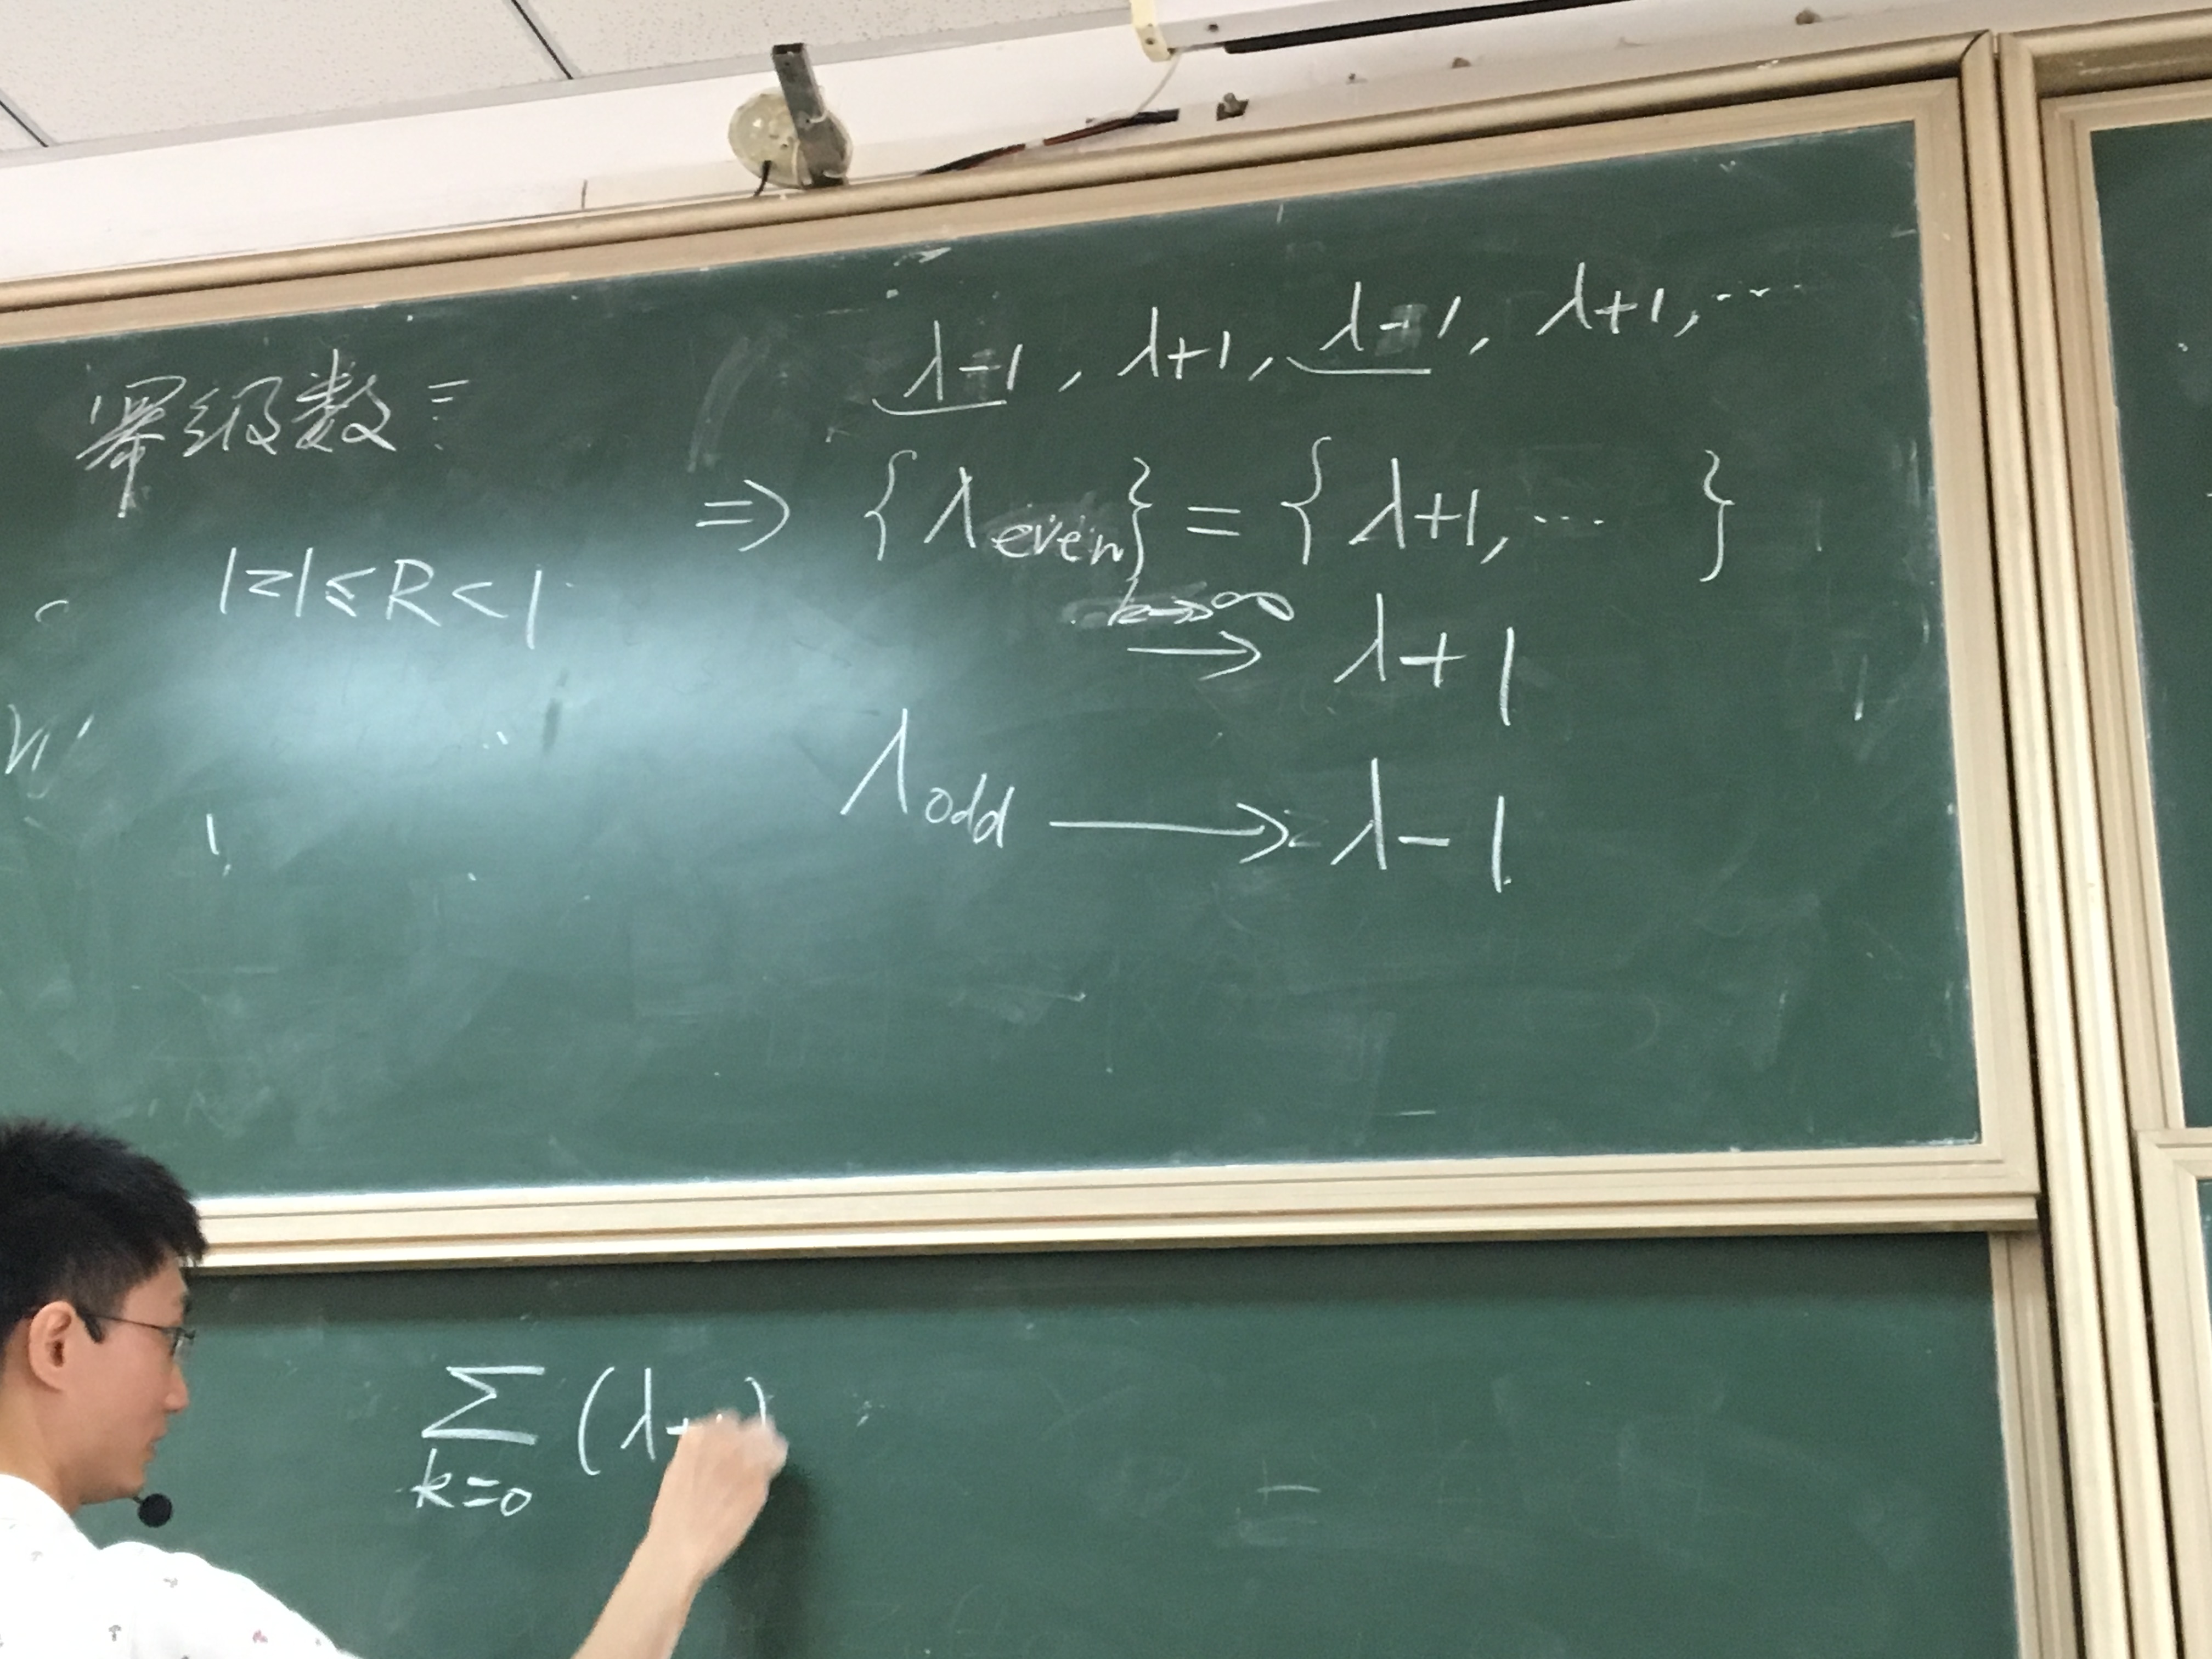 幂级数:
|z|≤R<1
λ-1, λ+1, λ-1, λ+1, ...
⇒ {λ even} = {λ+1, ... }
k→∞
→ λ+1
λ odd → λ-1
∑ (λ
k=0